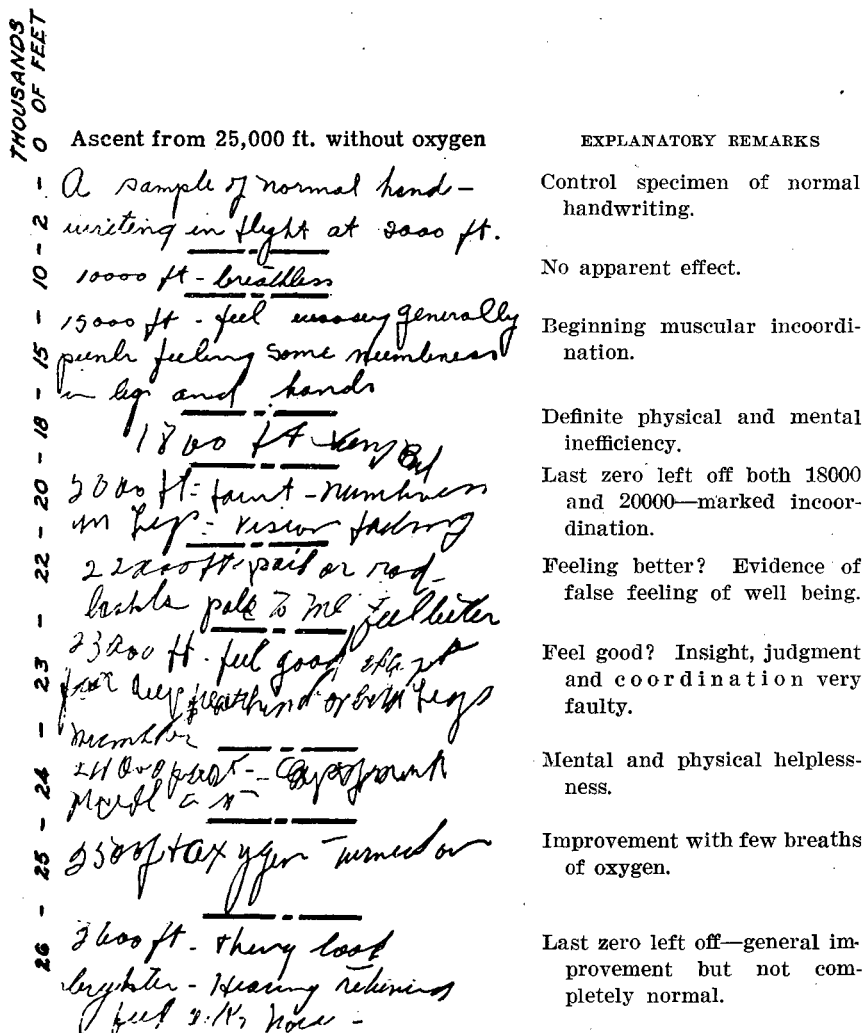 THOUSANDS
OF FEET
0 - 2 - 10 - 15 - 18 - 20 - 22 - 23 - 24 - 25 - 26
Ascent from 25,000 ft. without oxygen
A sample of normal hand-
writing in flight at 2000 ft.
10000 ft - breathless
15000 ft - feel generally
feeling some numbness
in legs and hands
1800 ft - very Bad
2000 ft = faint - numbness
in Legs = vision fading
22000 ft
pale to me feel better
23000 ft - feel good
deep Legs
ft oxygen turned on
2600 ft - look
brighter - Hearing
feel O.K. now -
EXPLANATORY REMARKS
Control specimen of normal
handwriting.
No apparent effect.
Beginning muscular incoordi-
nation.
Definite physical and mental
inefficiency.
Last zero left off both 18000
and 20000—marked incoor-
dination.
Feeling better? Evidence of
false feeling of well being.
Feel good? Insight, judgment
and coordination very
faulty.
Mental and physical helpless-
ness.
Improvement with few breaths
of oxygen.
Last zero left off—general im-
provement but not com-
pletely normal.